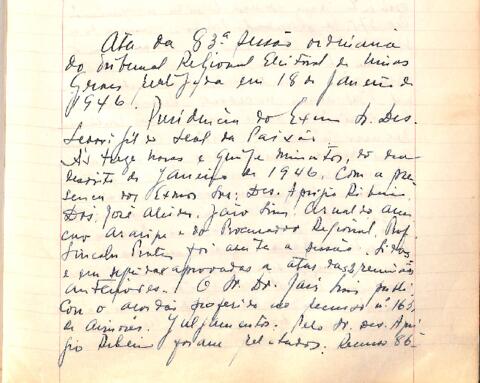 Ata da 83ª sessão ordinaria
do Tribunal Regional Eleitoral de Minas
Gerais em 18 de Janeiro de
1946.
Presidencia do Exmo Sr. Des.
Leal da Paixão
Ás treze horas e quinze minutos, do dia
dezoito de Janeiro de 1946. Com a pre-
sença dos Exmos Srs. Des. Aprigio Ribeiro,
Drs. José Alcides, Jair Lins, Arnaldo
Araripe e do Procurador Regional, Prof.
Lincoln Prates foi aberta a sessão. Lidas
e em seguidas aprovadas a atas das reuniões
anteriores. O Sr. Dr. Jair Lins publi-
cou o acordão proferido no recurso nº 163,
de Aimores. Julgamentos. Pelo Sr. des. Apri-
gio Ribeiro foram relatados: Recurso 86-